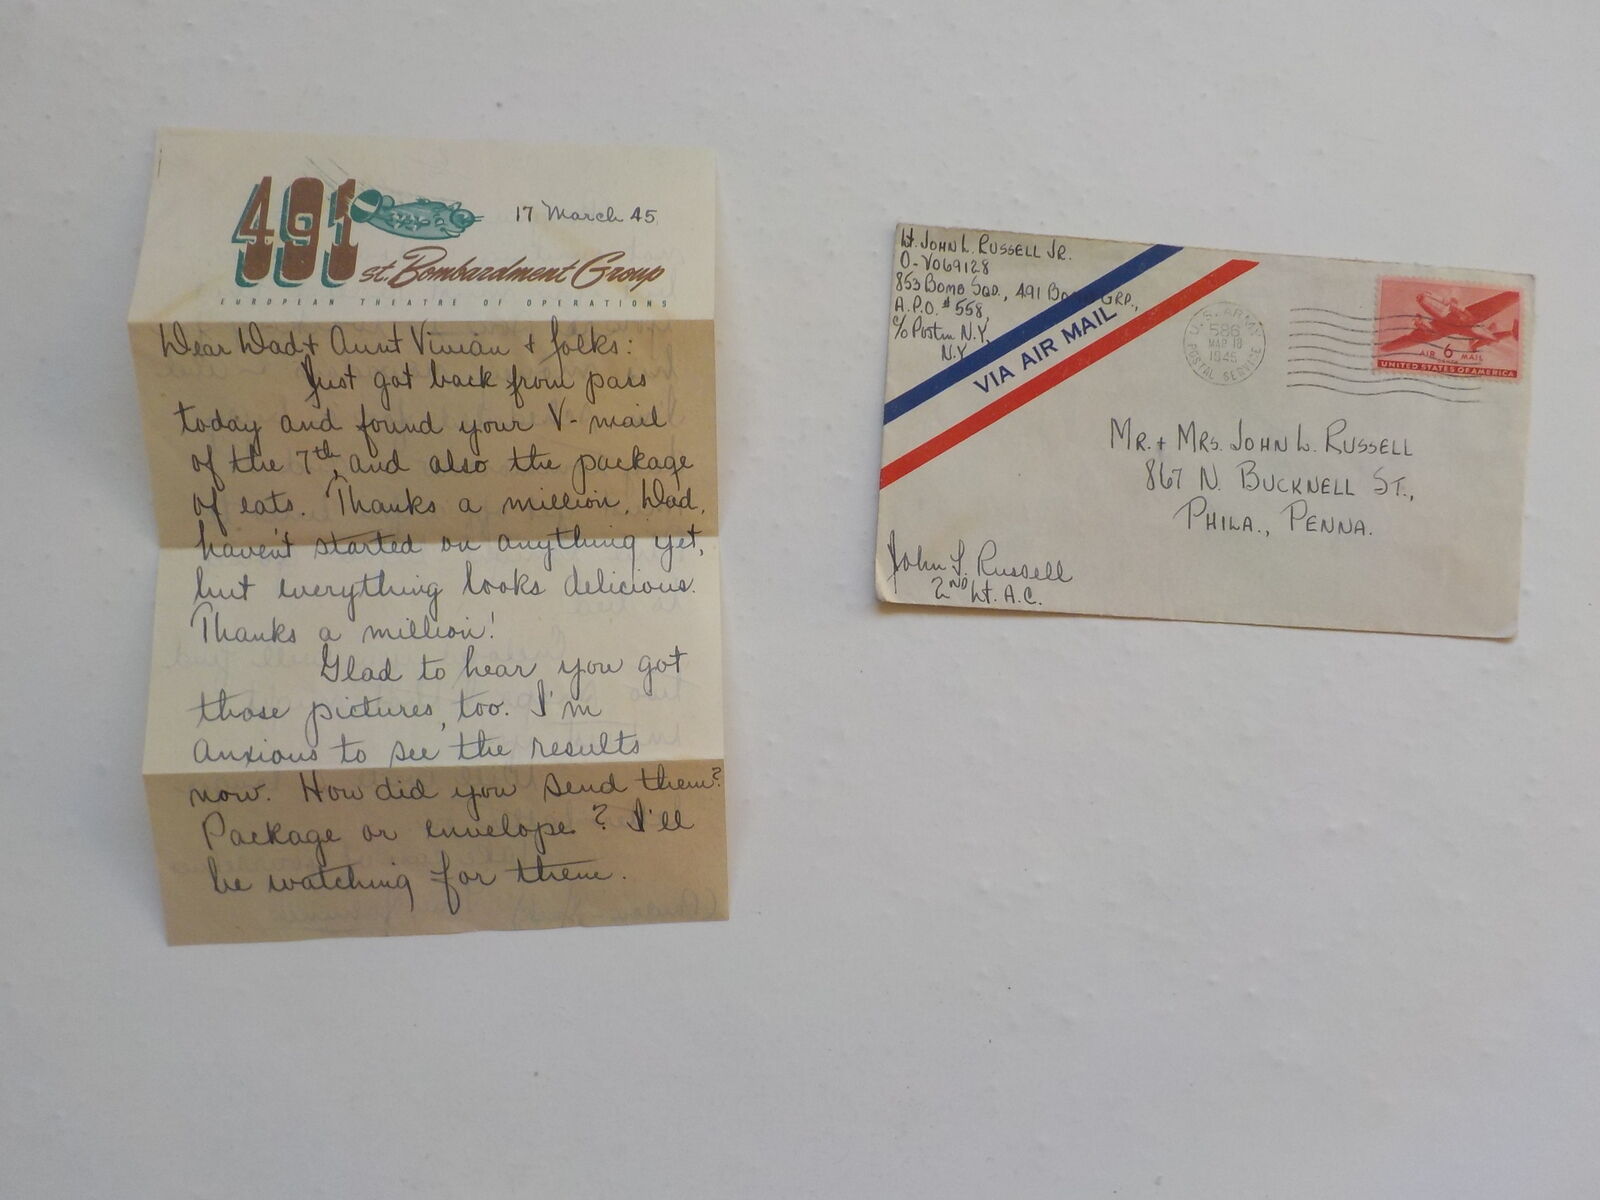 491
st. Bombardment Group
EUROPEAN THEATRE OF OPERATIONS
17 March 45
Dear Dad + Aunt Vivian + folks:
Just got back from pass
today and found your V-mail
of the 7th, and also the package
of eats. Thanks a million, Dad,
haven't started on anything yet,
but everything looks delicious.
Thanks a million!
Glad to hear you got
those pictures, too. I'm
anxious to see the results
now. How did you send them?
Package or envelope? I'll
be watching for them.
Lt. John L. Russell Jr.
O-V069128
853 Bomb Sqd., 491 Bomb Grp.,
A.P.O. #558,
c/o Postm. N.Y.,
N.Y.
VIA AIR MAIL
U.S. ARMY
586
MAR 18
1945
POSTAL SERVICE
AIR 6 MAIL
CENTS
UNITED STATES OF AMERICA
Mr. + Mrs. John L. Russell
867 N. Bucknell St.,
Phila., Penna.
John L. Russell
2nd Lt. A.C.